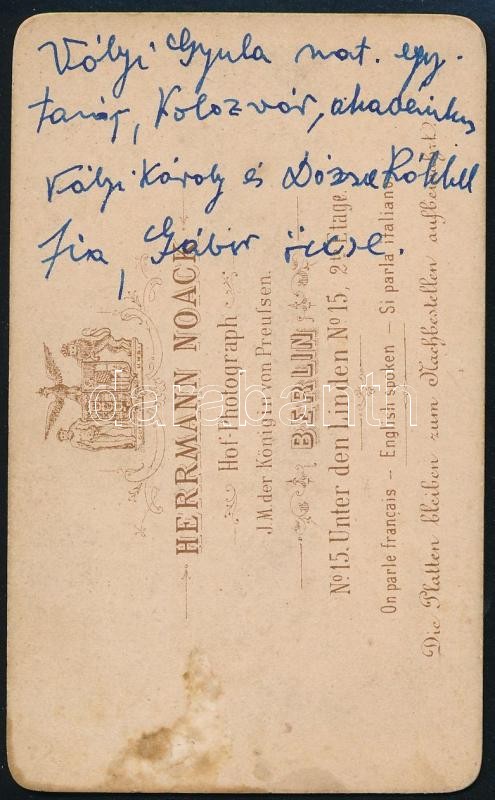 Vályi Gyula mat. egy.
tanár, Kolozsvár, akadémikus
Vályi Károly és Dózsa Ráhel
fia, Gábor öccse.
HERRMANN NOACK
Hof-Photograph
J.M. der Königin von Preufsen.
BERLIN
No 15. Unter den Linden No 15, 2te Etage.
On parle français — English spoken — Si parla italiano
Die Platten bleiben zum Nachbestellen aufbewahrt.
darabanth